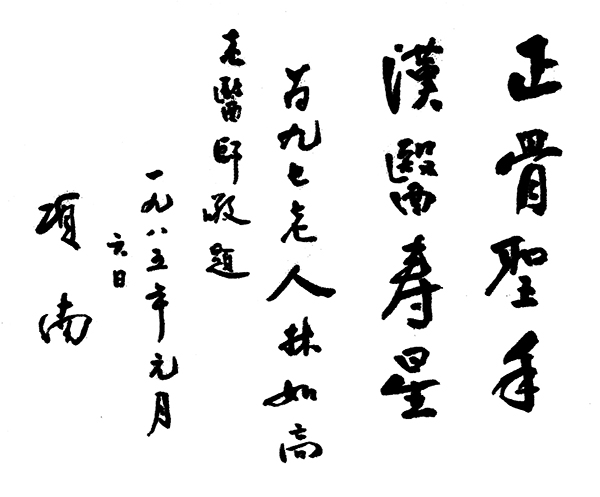 正骨聖手
漢醫寿星
为九七老人林如高
老醫師敬題
一九八五年元月
六日
項南